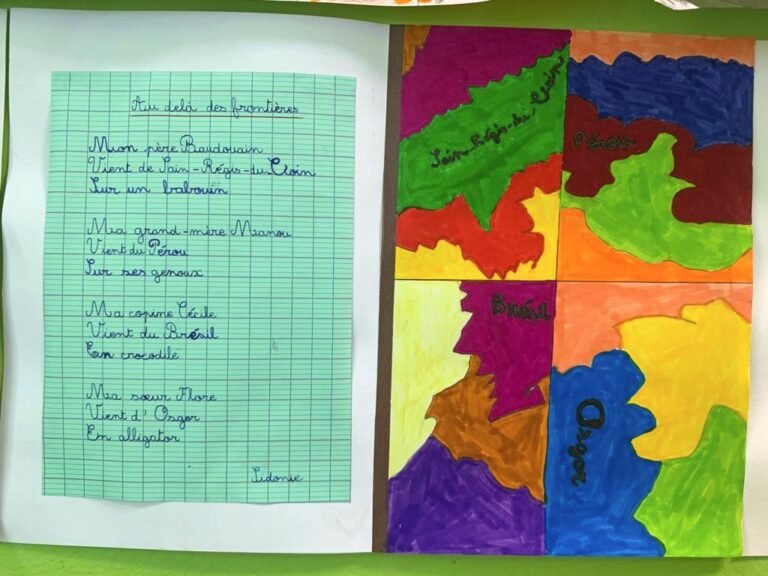 Au delà des frontières
Mon père Baudouain
Vient de Sain-Régis-du-Coin
Sur un babouin
Ma grand-mère Manou
Vient du Pérou
Sur ses genoux
Ma copine Cécile
Vient du Brésil
En crocodile
Ma sœur Flore
Vient d'Osgor
En alligator
Sidonie
Sain-Régis-du-Coin
Pérou
Brésil
Osgor